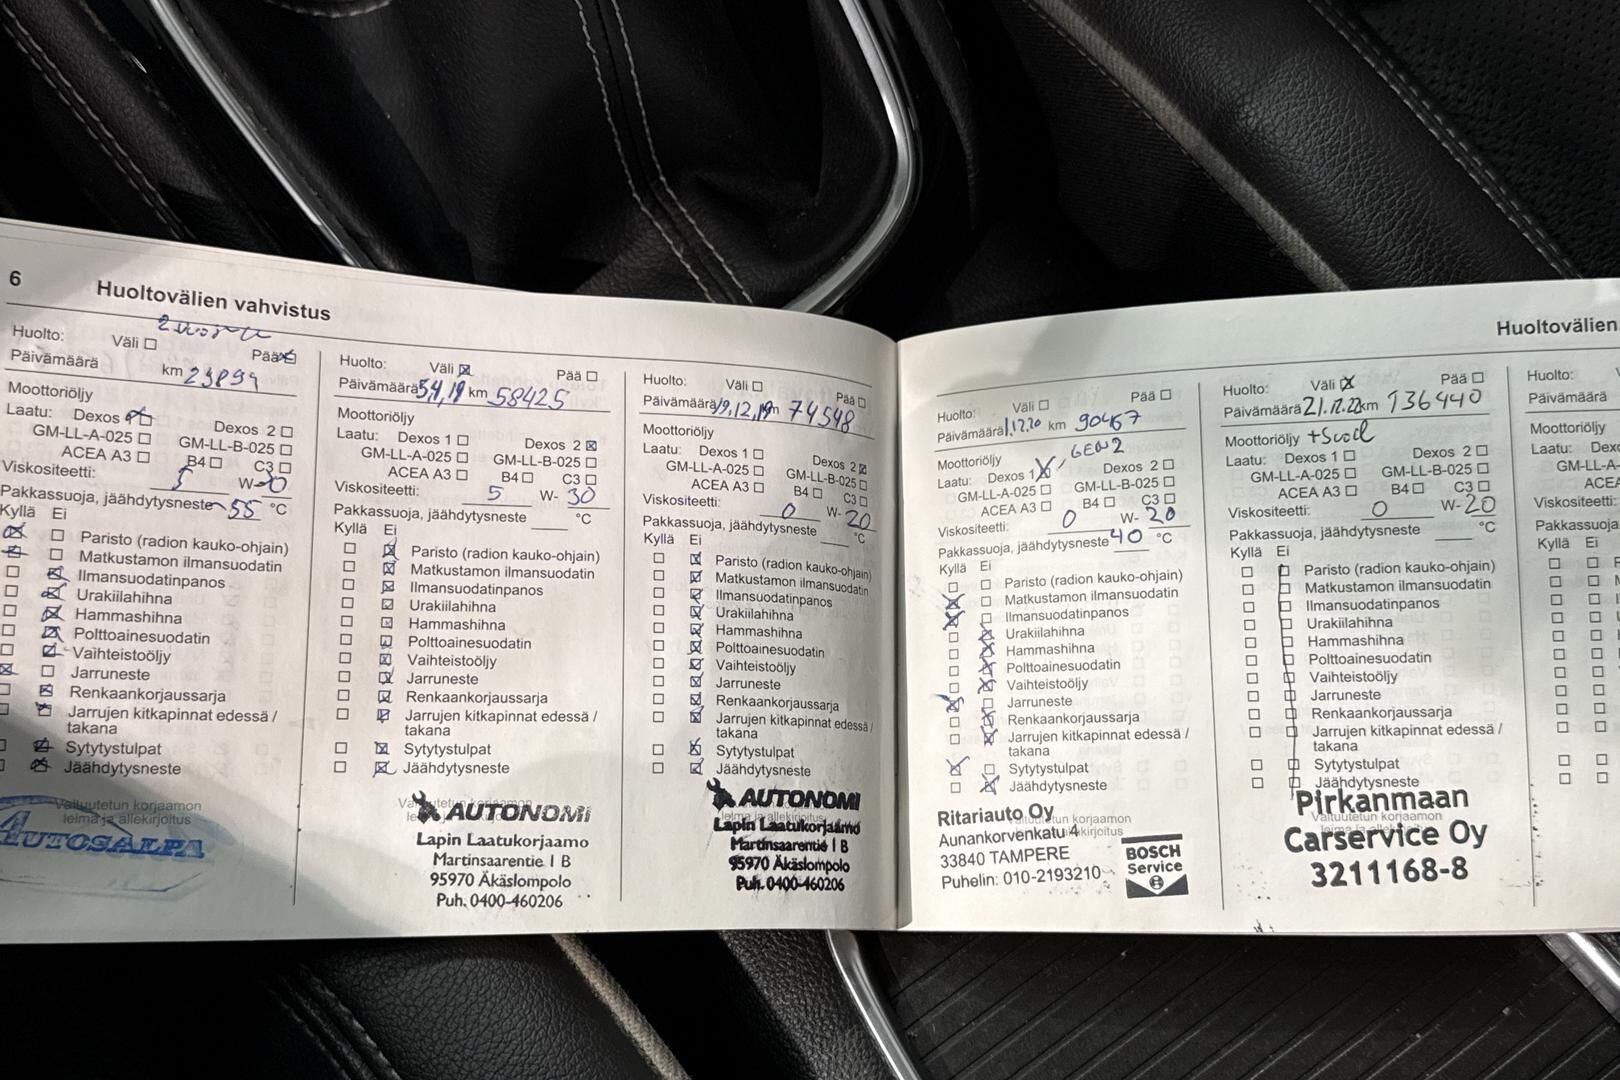 6
Huoltovälien vahvistus
Huolto: Väli Pää
Päivämäärä km 23899
Moottoriöljy
Laatu: Dexos 1 Dexos 2
GM-LL-A-025 GM-LL-B-025
ACEA A3 B4 C3
Viskositeetti: 5 W-30
Pakkassuoja, jäähdytysneste -55 °C
Kyllä Ei
Paristo (radion kauko-ohjain)
Matkustamon ilmansuodatin
Ilmansuodatinpanos
Urakiilahihna
Hammashihna
Polttoainesuodatin
Vaihteistoöljy
Jarruneste
Renkaankorjaussarja
Jarrujen kitkapinnat edessä /
takana
Sytytystulpat
Jäähdytysneste
Valtuutetun korjaamon
leima ja allekirjoitus
AUTOSALPA
Huolto: Väli Pää
Päivämäärä 5,4,19 km 58425
Moottoriöljy
Laatu: Dexos 1 Dexos 2
GM-LL-A-025 GM-LL-B-025
ACEA A3 B4 C3
Viskositeetti: 5 W- 30
Pakkassuoja, jäähdytysneste °C
Kyllä Ei
Paristo (radion kauko-ohjain)
Matkustamon ilmansuodatin
Ilmansuodatinpanos
Urakiilahihna
Hammashihna
Polttoainesuodatin
Vaihteistoöljy
Jarruneste
Renkaankorjaussarja
Jarrujen kitkapinnat edessä /
takana
Sytytystulpat
Jäähdytysneste
AUTONOMI
Lapin Laatukorjaamo
Martinsaarentie 1 B
95970 Äkäslompolo
Puh. 0400-460206
Huolto: Väli Pää
Päivämäärä 19,12,19 km 74548
Moottoriöljy
Laatu: Dexos 1 Dexos 2
GM-LL-A-025 GM-LL-B-025
ACEA A3 B4 C3
Viskositeetti: 0 W- 20
Pakkassuoja, jäähdytysneste °C
Kyllä Ei
Paristo (radion kauko-ohjain)
Matkustamon ilmansuodatin
Ilmansuodatinpanos
Urakiilahihna
Hammashihna
Polttoainesuodatin
Vaihteistoöljy
Jarruneste
Renkaankorjaussarja
Jarrujen kitkapinnat edessä /
takana
Sytytystulpat
Jäähdytysneste
AUTONOMI
Lapin Laatukorjaamo
Martinsaarentie 1 B
95970 Äkäslompolo
Puh. 0400-460206
Huoltovälien
Huolto: Väli Pää
Päivämäärä 1.12.20 km 90467
Moottoriöljy GEN 2
Laatu: Dexos 1 Dexos 2
GM-LL-A-025 GM-LL-B-025
ACEA A3 B4 C3
Viskositeetti: 0 W- 20
Pakkassuoja, jäähdytysneste 40 °C
Kyllä Ei
Paristo (radion kauko-ohjain)
Matkustamon ilmansuodatin
Ilmansuodatinpanos
Urakiilahihna
Hammashihna
Polttoainesuodatin
Vaihteistoöljy
Jarruneste
Renkaankorjaussarja
Jarrujen kitkapinnat edessä /
takana
Sytytystulpat
Jäähdytysneste
Ritariauto Oy
Aunankorvenkatu 4
33840 TAMPERE
Puhelin: 010-2193210
BOSCH
Service
Huolto: Väli Pää
Päivämäärä 21.12.22 km 136440
Moottoriöljy
Laatu: Dexos 1 Dexos 2
GM-LL-A-025 GM-LL-B-025
ACEA A3 B4 C3
Viskositeetti: 0 W- 20
Pakkassuoja, jäähdytysneste °C
Kyllä Ei
Paristo (radion kauko-ohjain)
Matkustamon ilmansuodatin
Ilmansuodatinpanos
Urakiilahihna
Hammashihna
Polttoainesuodatin
Vaihteistoöljy
Jarruneste
Renkaankorjaussarja
Jarrujen kitkapinnat edessä /
takana
Sytytystulpat
Jäähdytysneste
Pirkanmaan
Carservice Oy
3211168-8
Huolto:
Päivämäärä
Moottoriöljy
Laatu:
Viskositeetti:
Pakkassuoja
Kyllä Ei